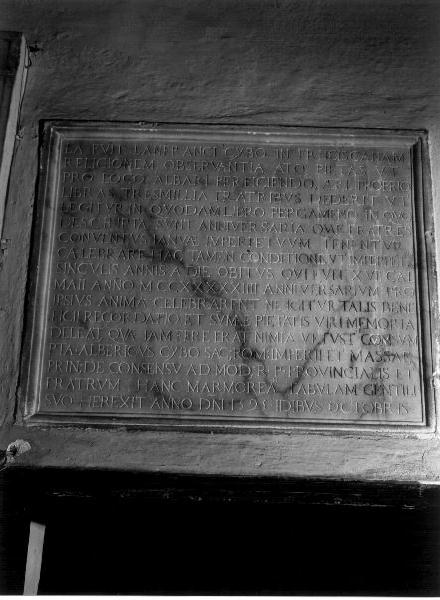 EA FUIT LANFRANCI CYBO IN FRANCISCANAM
RELIGIONEM OBSERVANTIA ATQ PIETAS VT
PRO LOCO ALBARI PERFICIENDO
LIBRAS TRESMILLIA FRATRIBUS DEDERIT VT
LEGITUR IN QVODAM LIBRO PERGAMENO IN QVO
DESCRIPTA SVNT ANNIVERSARIA QVAE FRATRES
CONVENTVS IANVAE IN PERPETVVM TENENTVR
CELEBRARE HAC TAMEN CONDITIONE VT
SINGVLIS ANNIS A DIE OBITVS QVI FVIT XVI CAL
MAII ANNO ANNIVERSARIVM PRO
IPSIVS ANIMA CELEBRARENT NE IGITVR TALIS BENE
FICII RECORDATIO ET SVMAE PIETATIS VIRI MEMORIA
DELEAT QVA IAM FERE ERAT NIMIA VETVST CONSVM
PTA ALBERICVS CYBO SAC ROM IMPERII ET MASSAE
PRIN DE CONSENSV ADMOD R P PROVINCIALIS ET
FRATRVM HANC MARMOREA TABVLAM GENTILI
SVO H EREXIT ANNO DNI IDIBVS OCTOBRIS